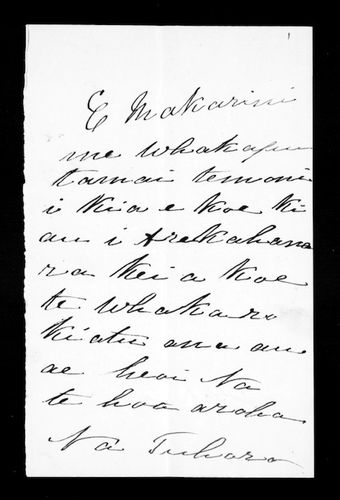 E Makarini
me whakapu
tamai temoni
i kia e koe ki
au i Arekahana
ra kei a koe
te whakaro
kiatu ana au
ae heoi Na
te hoa aroha
Na Tuhoro